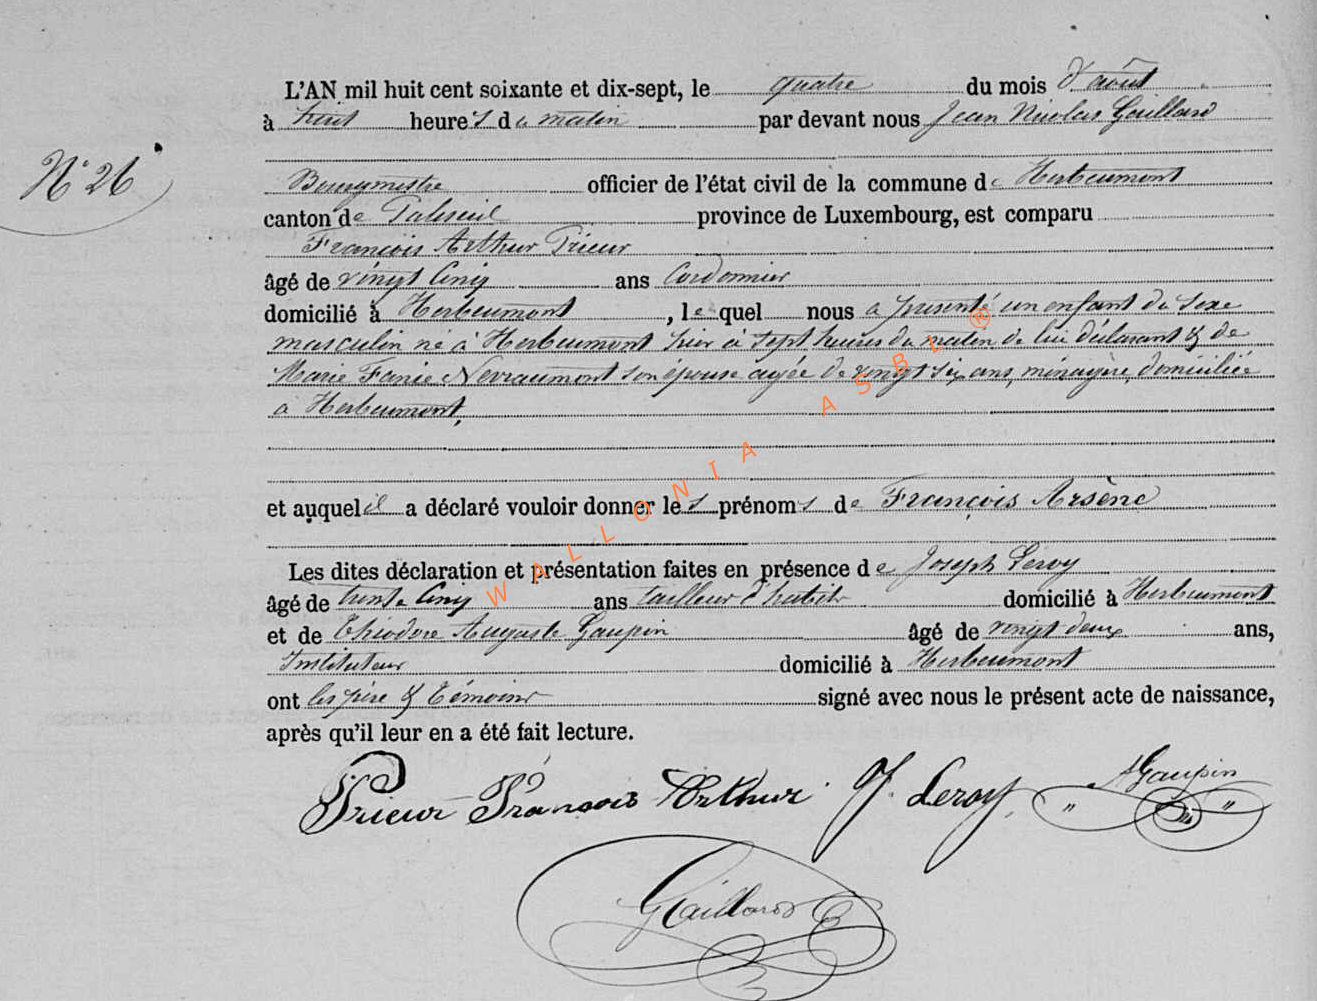 L'AN mil huit cent soixante et dix-sept, le quatre du mois d'août
à huit heures du matin par devant nous Jean Nicolas Gaillard
N° 26
Bourgmestre officier de l'état civil de la commune de Herbeumont
canton de Paliseul province de Luxembourg, est comparu
François Arthur Prieur
âgé de vingt cinq ans Cordonnier
domicilié à Herbeumont, lequel nous a présenté un enfant du sexe
masculin né à Herbeumont hier à sept heures du matin de lui déclarant & de
Marie Fanie Nevraumont son épouse agée de vingt six ans, ménagère, domiciliée
à Herbeumont,
et auquel il a déclaré vouloir donner les prénoms de François Arsène
Les dites déclaration et présentation faites en présence de Joseph Leroy
âgé de trente cinq ans tailleur d'habits domicilié à Herbeumont
et de Théodore Auguste Gaupin âgé de vingt deux ans,
Instituteur domicilié à Herbeumont
ont les père & témoins signé avec nous le présent acte de naissance,
après qu'il leur en a été fait lecture.
Prieur François Arthur J. Leroy, A Gaupin
Gaillard
WALLONIA ASBL ®